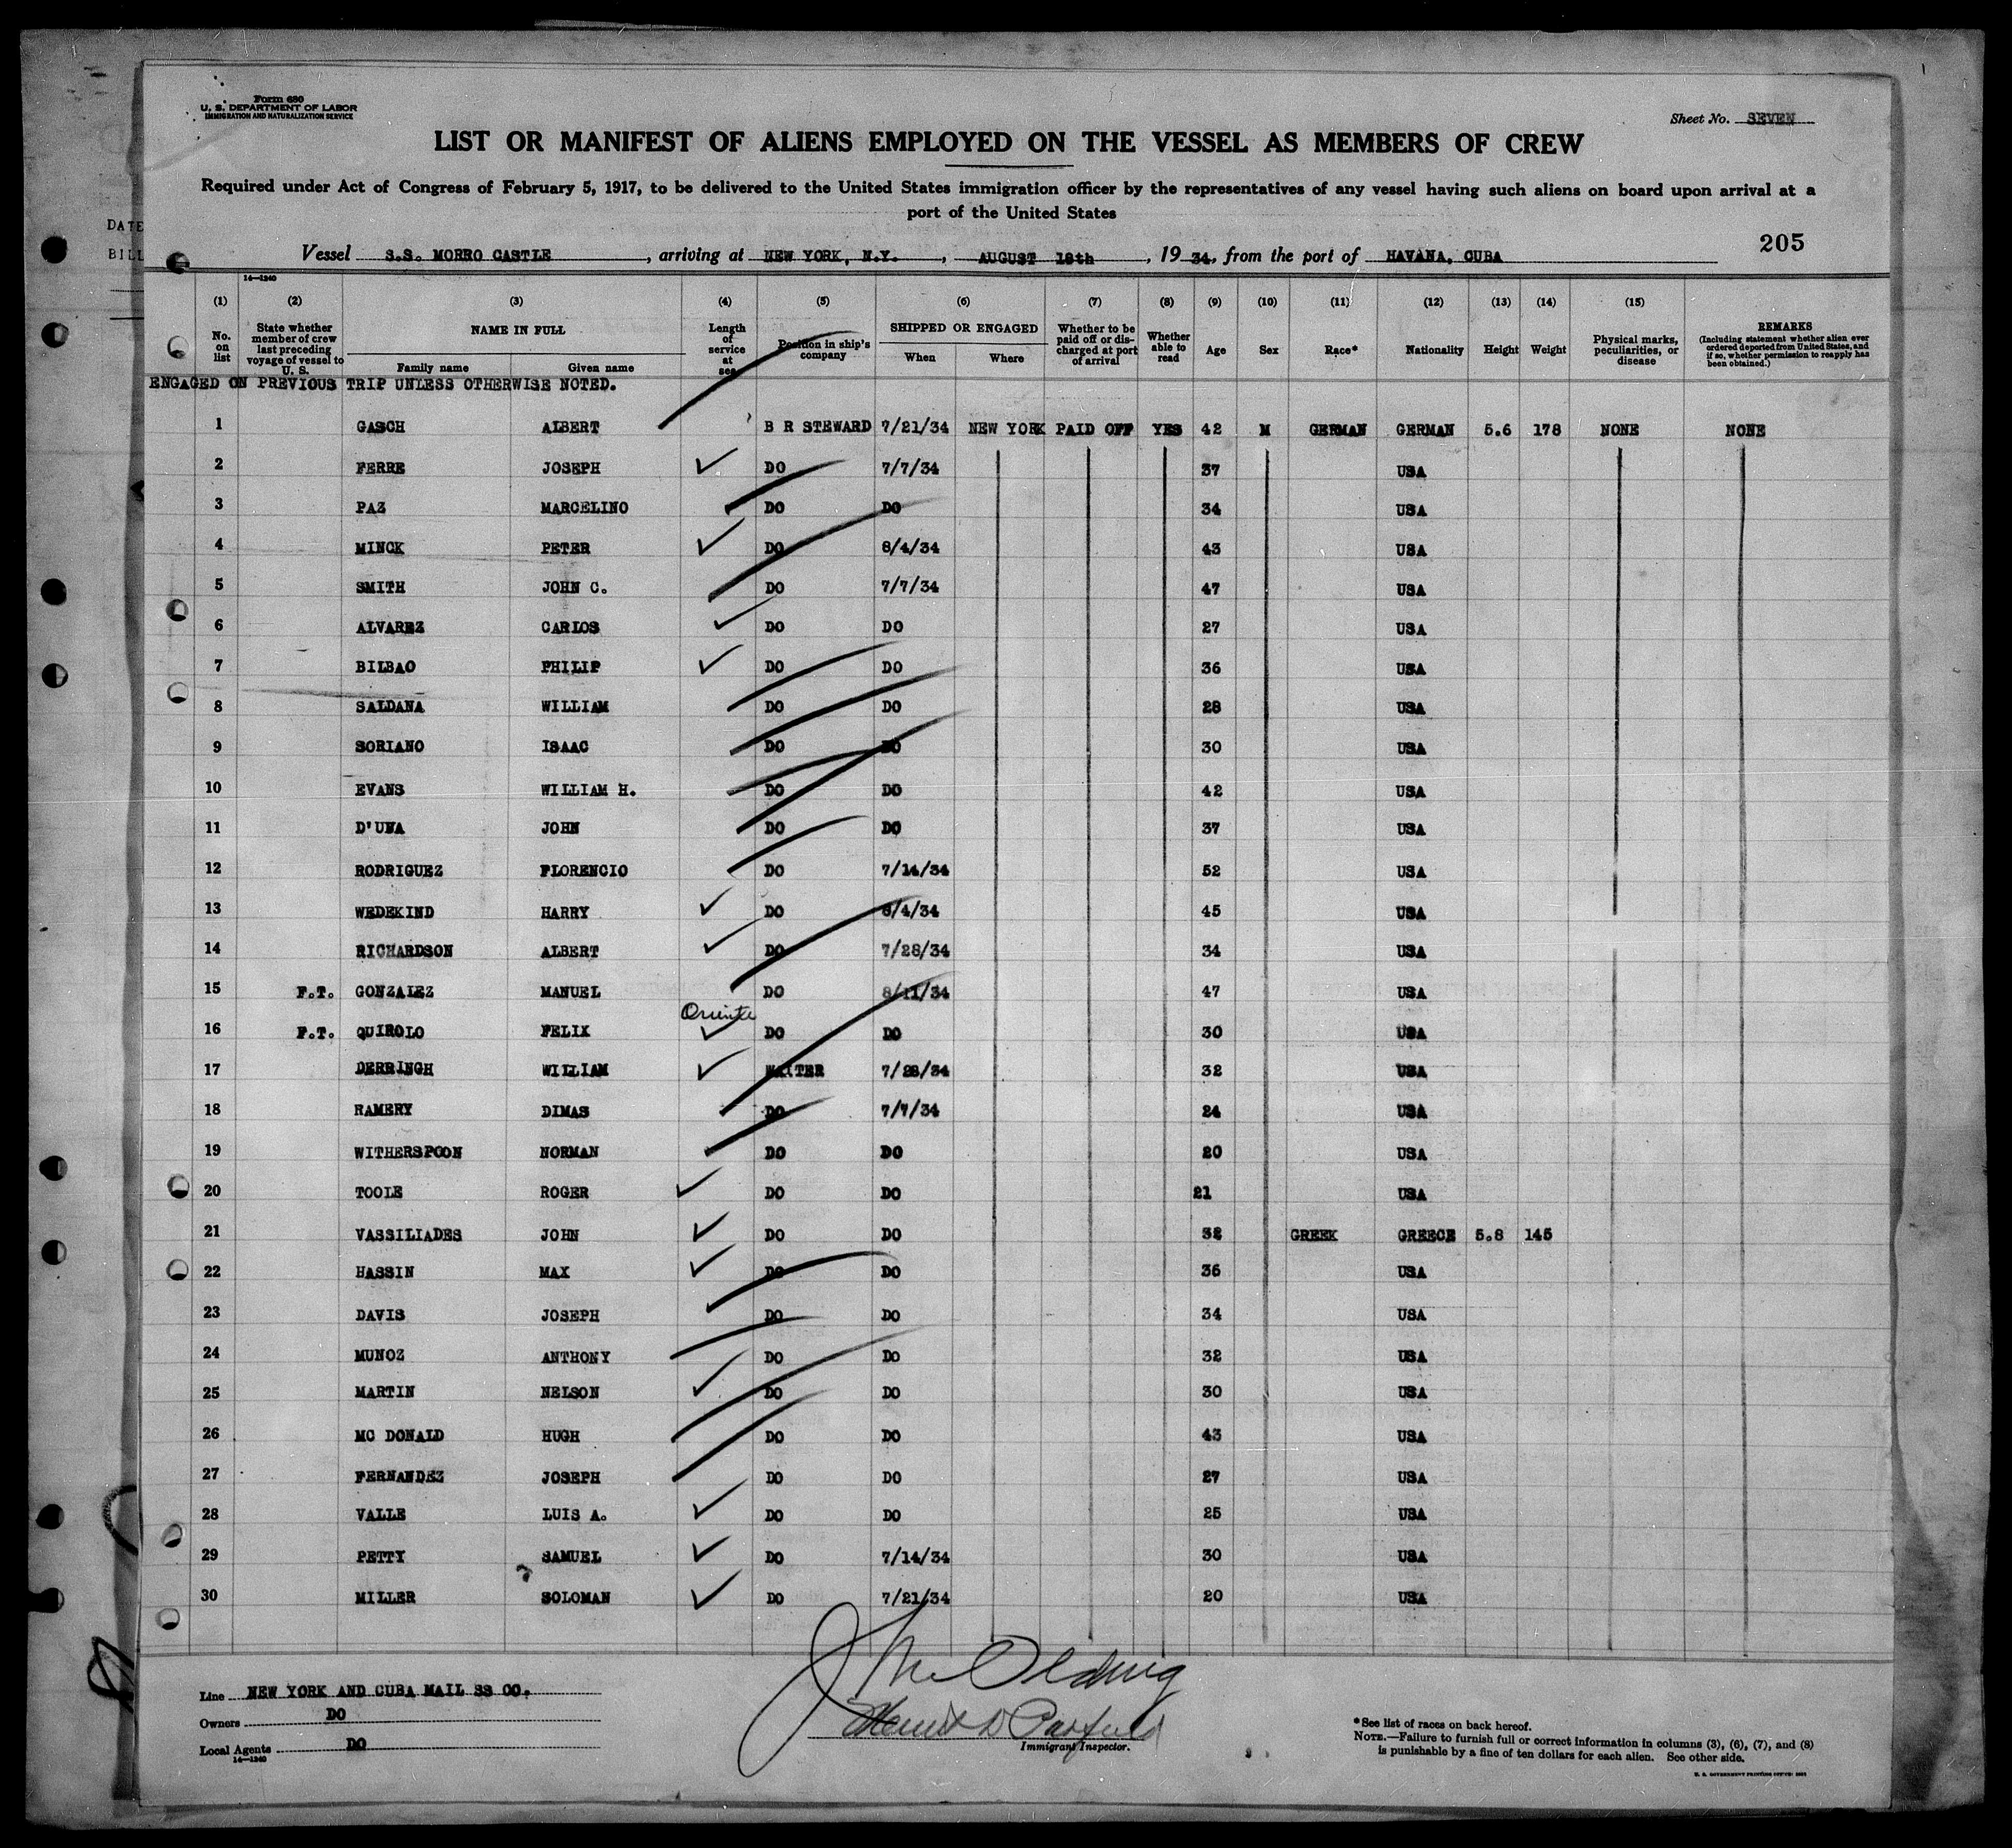 Form 680
U. S. DEPARTMENT OF LABOR
IMMIGRATION AND NATURALIZATION SERVICE
Sheet No. SEVEN
LIST OR MANIFEST OF ALIENS EMPLOYED ON THE VESSEL AS MEMBERS OF CREW
Required under Act of Congress of February 5, 1917, to be delivered to the United States immigration officer by the representatives of any vessel having such aliens on board upon arrival at a
port of the United States
DATE
BILL
205
Vessel S.S. MORRO CASTLE, arriving at NEW YORK, N.Y., AUGUST 18th, 1934, from the port of HAVANA, CUBA
14—1240
(1) (2) (3) (4) (5) (6) (7) (8) (9) (10) (11) (12) (13) (14) (15)
No. on list State whether member of crew last preceding voyage of vessel to U. S. NAME IN FULL Family name Given name Length of service at sea Position in ship's company SHIPPED OR ENGAGED When Where Whether to be paid off or discharged at port of arrival Whether able to read Age Sex Race* Nationality Height Weight Physical marks, peculiarities, or disease REMARKS (Including statement whether alien ever ordered deported from United States, and if so, whether permission to reapply has been obtained.)
ENGAGED ON PREVIOUS TRIP UNLESS OTHERWISE NOTED.
1 GASCH ALBERT B R STEWARD 7/21/34 NEW YORK PAID OFF YES 42 M GERMAN GERMAN 5.6 178 NONE NONE
2 FERRE JOSEPH DO 7/7/34 37 USA
3 PAZ MARCELINO DO DO 34 USA
4 MINCK PETER DO 8/4/34 43 USA
5 SMITH JOHN C. DO 7/7/34 47 USA
6 ALVAREZ CARLOS DO DO 27 USA
7 BILBAO PHILIP DO DO 36 USA
8 SALDANA WILLIAM DO DO 28 USA
9 SORIANO ISAAC DO DO 30 USA
10 EVANS WILLIAM H. DO DO 42 USA
11 D'UVA JOHN DO DO 37 USA
12 RODRIGUEZ FLORENCIO DO 7/14/34 52 USA
13 WEDEKIND HARRY DO 8/4/34 45 USA
14 RICHARDSON ALBERT DO 7/28/34 34 USA
15 F.T. GONZALEZ MANUEL DO 8/11/34 47 USA
Oriente
16 F.T. QUIROLO FELIX DO DO 30 USA
17 DERRINGH WILLIAM WAITER 7/28/34 32 USA
18 RAMERY DIMAS DO 7/7/34 24 USA
19 WITHERSPOON NORMAN DO DO 20 USA
20 TOOLE ROGER DO DO 21 USA
21 VASSILIADES JOHN DO DO 32 GREEK GREECE 5.8 145
22 HASSIN MAX DO DO 36 USA
23 DAVIS JOSEPH DO DO 34 USA
24 MUNOZ ANTHONY DO DO 32 USA
25 MARTIN NELSON DO DO 30 USA
26 MC DONALD HUGH DO DO 43 USA
27 FERNANDEZ JOSEPH DO DO 27 USA
28 VALLE LUIS A. DO DO 25 USA
29 PETTY SAMUEL DO 7/14/34 30 USA
30 MILLER SOLOMAN DO 7/21/34 20 USA
Line NEW YORK AND CUBA MAIL SS CO.
Owners DO
Local Agents DO
14—1240
Immigrant Inspector.
*See list of races on back hereof.
NOTE.—Failure to furnish full or correct information in columns (3), (6), (7), and (8)
is punishable by a fine of ten dollars for each alien. See other side.